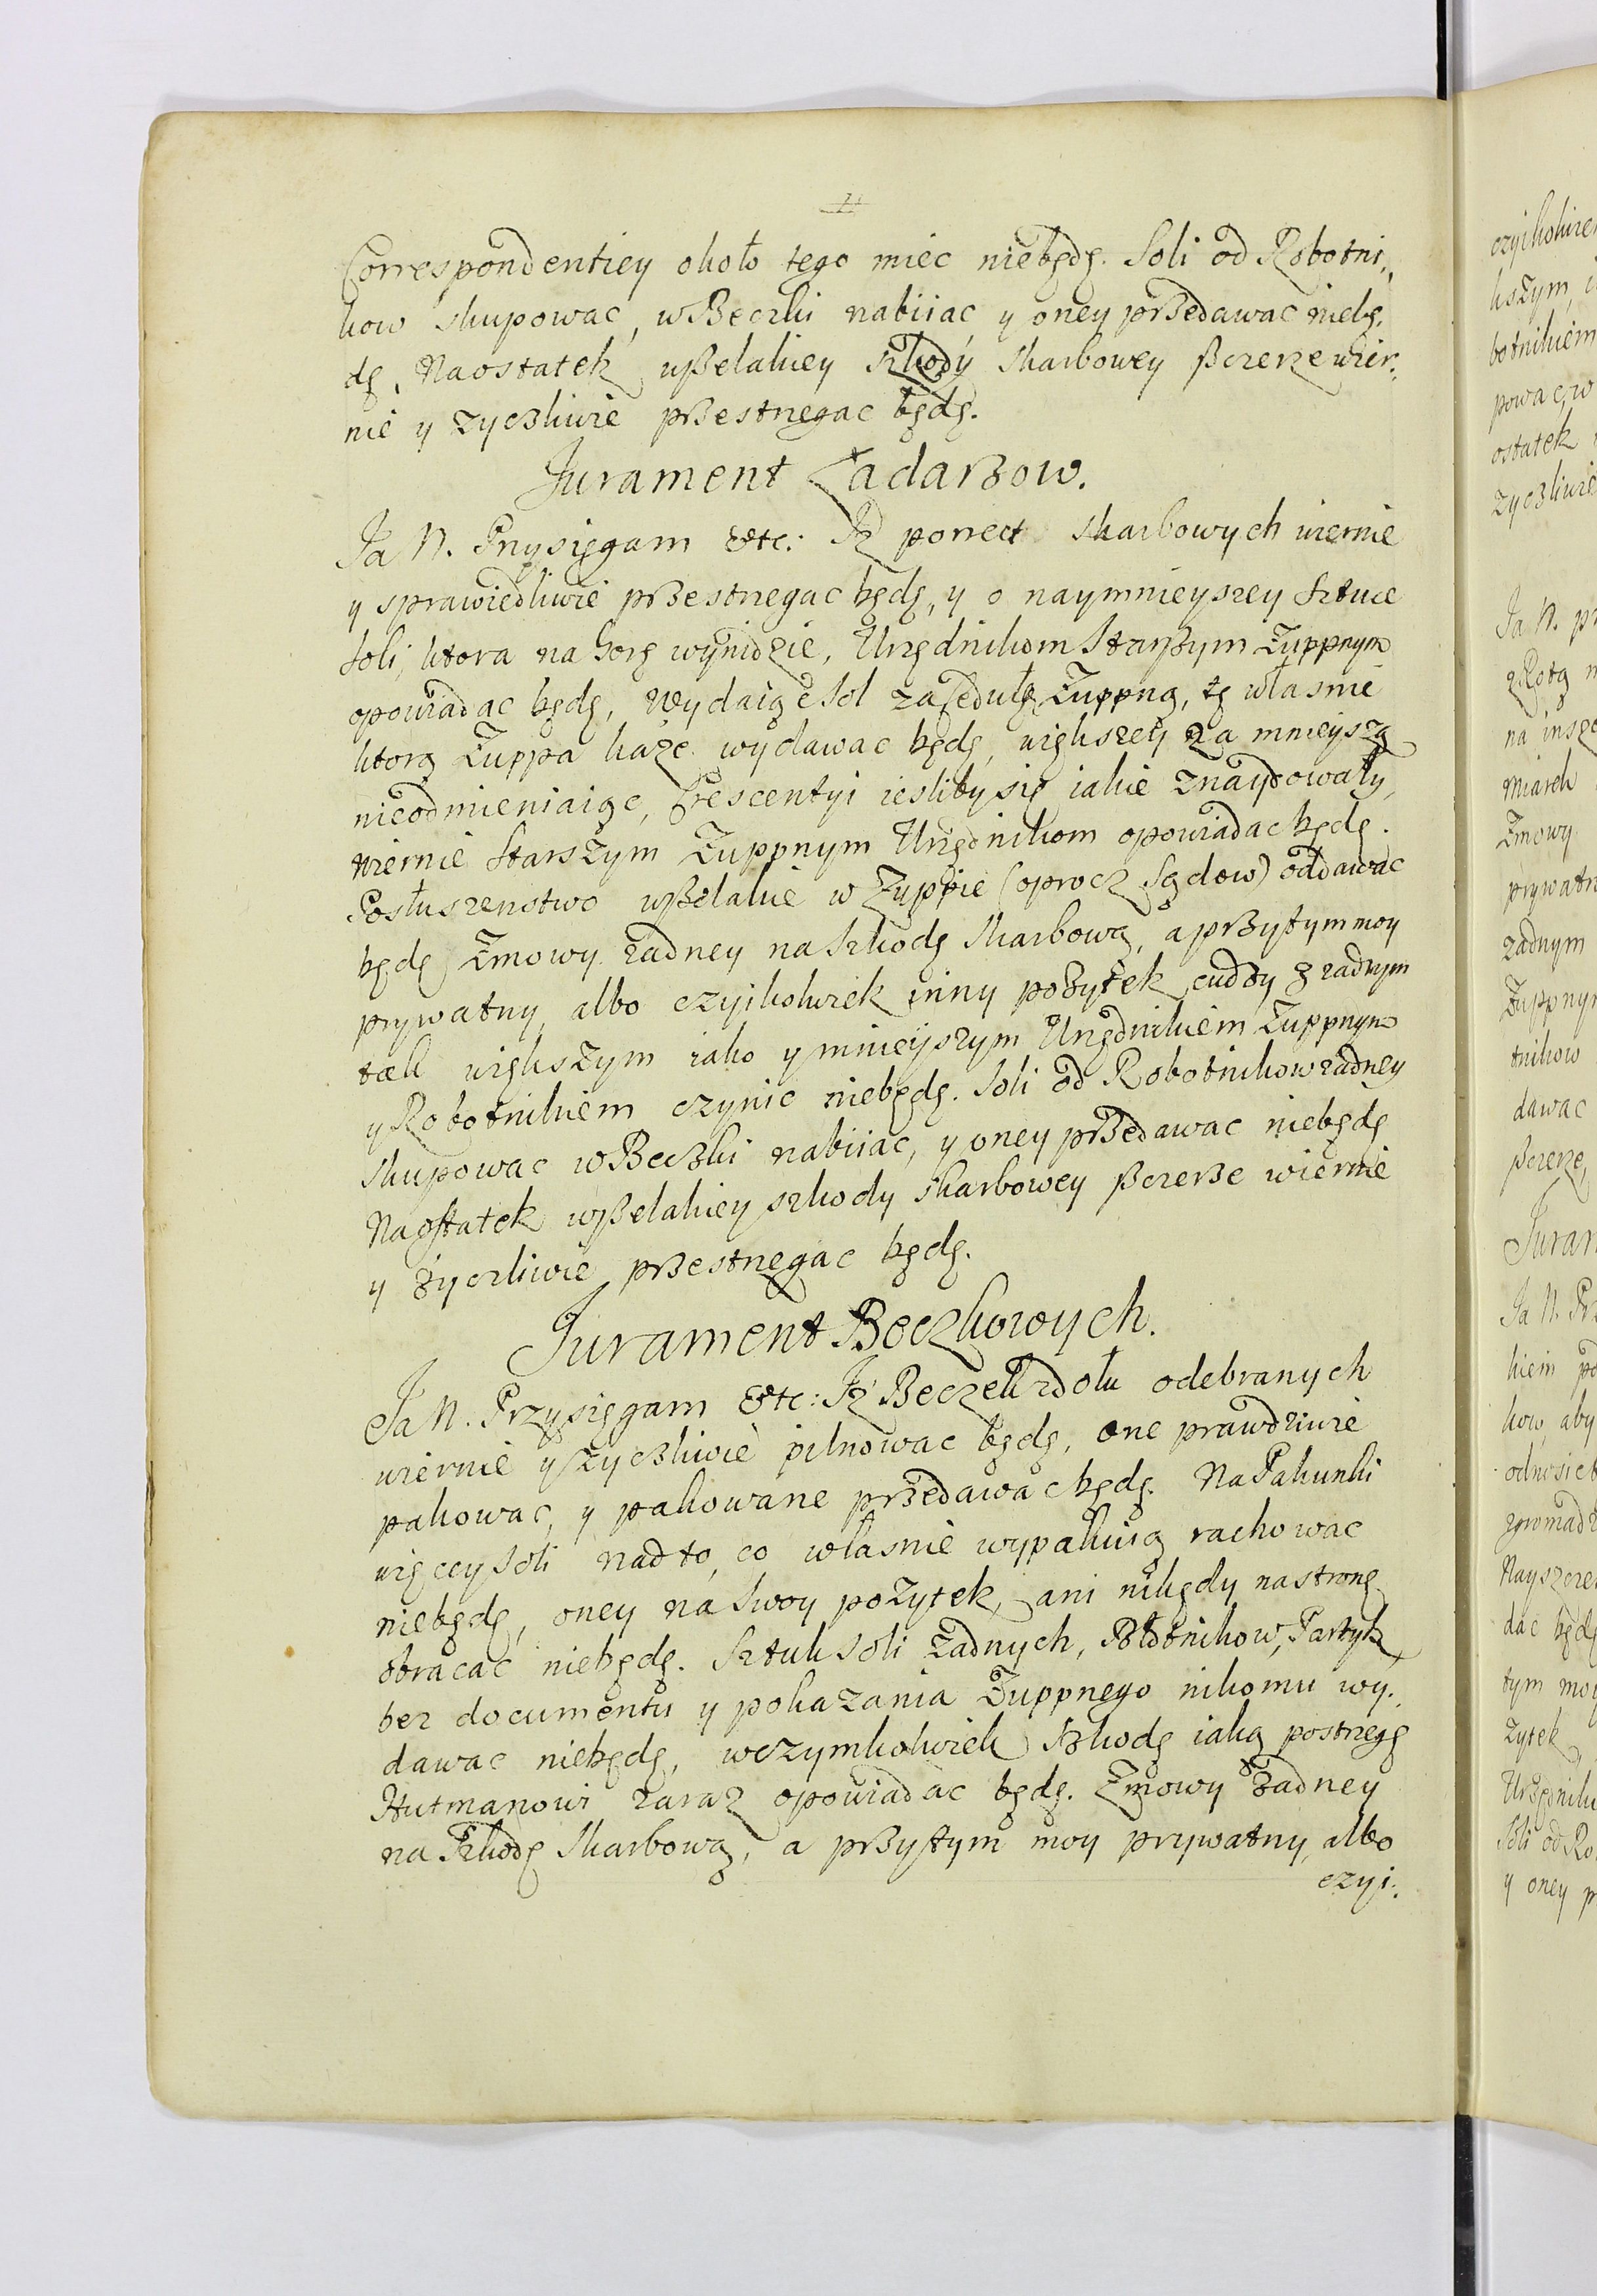 Correspondentiey około tego miec niebędę. Soli od Robotni„
kow skupowac, w Beczki nabiiac y oney przedawac niebę„
dę, Naostatek wßelakiey szkody skarbowey ßczerze wier„
nie y zyczliwie przestrzegac będę.
Jurament Ładarzow.
Ja N. Przysięgam etc: Iz porrect skarbowych wiernie
y sprawiedliwie przestrzegac będę, y o naymnieyszey sztuce
soli, ktora na Gorę wynidzie, Urzędnikom Starszym Żuppnym
opowiadac będę, Wydaiąc Sol za sedułą Żuppną, tę własnie
ktorą Żuppa każe wydawac będę, większey za mnieyszą
nieodmieniaiąc, Crescentyi iesliby się iakie znaydowały,
wiernie Starszym Żuppnym Urzędnikom opowiadac będę.
Posłuszenstwo wßelakie w Żuppie (oprocz Sądow) oddawac
będę Zmowy żadney na Szkodę Skarbową, a przytym moy
prywatny albo czyikolwiek inny pożytek cudzy z żadnym
tak większym iako y mnieyszym Urzędnikiem Żuppnym
y Robotnikiem czynic niebędę. Soli od Robotnikow żadney
skupowac w Beczki nabiiac, y oney przedawac niebędę
Naostatek wßelakiey szkody skarbowey ßczerze wiernie
y życzliwie przestrzegac będę.
Jurament Beczkowych.
Ja N. Przysięgam etc: Iż Beczek zdołu odebranych
wiernie y życzliwie pilnowac będę, one prawdziwie
pakowac, y pakowane przedawac będę. Na Pakunki
więcey soli nad to, co własnie wypakuią rachowac
niebędę, oney na swoy pożytek, ani nikędy na stronę
obracac niebędę. Sztuk soli żadnych, Błotnikow, Partyk
bez documentu y pokazania Żuppnego nikomu wy„
dawac niebędę, w czymkolwiek szkodę iaką postrzegę
Hutmanowi zaraz opowiadac będę. Zmowy żadney
na Szkodę Skarbową, a przytym moy prywatny, albo
czyi„
czyikolwie
kszym, i
botnikiem
powac, w
ostatek
zyczliwie
Ja N. pr
na insze
miarek
Zmowy
prywatn
żadnym
Żuppnym
tnikow
dawac
ßczerze,
Juram
Ja N. Prz
kiem po
kow, aby
odnosic b
zgromadz
Nayszczer
dac będę
tym moy
żytek,
Urzędniki
Soli od Ro
y oney p